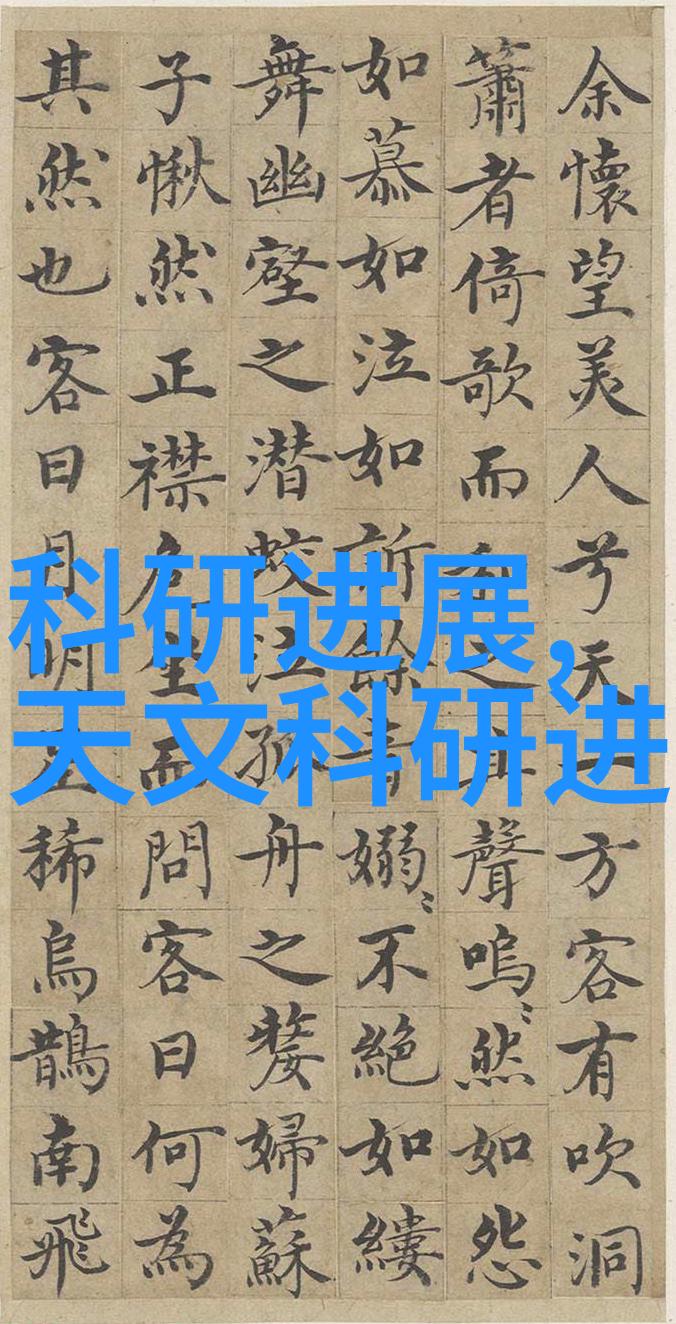 余懷望美人兮天一方客有吹洞
簫者倚歌而和之其聲嗚〻然如怨
如慕如泣如訴餘音嫋〻不絕如縷
舞幽壑之潜蛟泣孤舟之嫠婦蘇
子愀然正襟危坐而問客曰何為
其然也客曰月明星稀烏鵲南飛
科研进展,
天文科研进